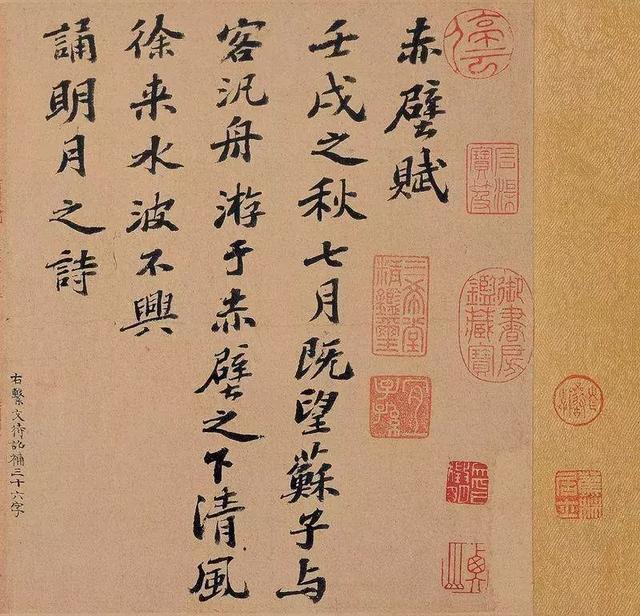 停云
石渠寶笈
御書房鑑藏寶
赤壁賦
三希堂精鑑璽
宜子孫
壬戌之秋七月既望蘇子与
客汎舟游于赤壁之下清風
徐来水波不興
誦明月之詩
右繫文待詔補三十六字